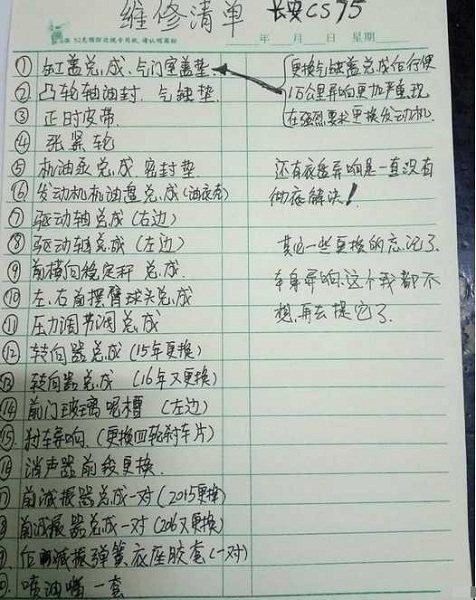 维修清单 长安CS75
52克精制道琳专用纸,请认明商标
年 月 日 星期
①缸盖总成、气门室盖垫
②凸轮轴油封、气缸垫
③正时皮带
④张紧轮
⑤机油泵总成 密封垫
⑥发动机机油盘总成(油底壳)
⑦驱动轴总成(右边)
⑧驱动轴总成(左边)
⑨前横向稳定杆总成
⑩左、右前摆臂球头总成
⑪压力调节阀总成
⑫转向器总成(15年更换)
⑬转向器总成(16年又更换)
⑭前门玻璃呢槽(左边)
⑮刹车异响(更换四轮刹车片)
消声器前段更换
前减振器总成一对(2015更换)
前减振器总成一对(2016又更换)
后减振弹簧底座胶套(一对)
喷油嘴一套
更换气缸盖总成后行使
1万公里异响更加严重,现
在强烈要求更换发动机。
还有底盘异响是一直没有
彻底解决!
其它一些更换的忘记了
车身异响这个我都不
想再去提它了.